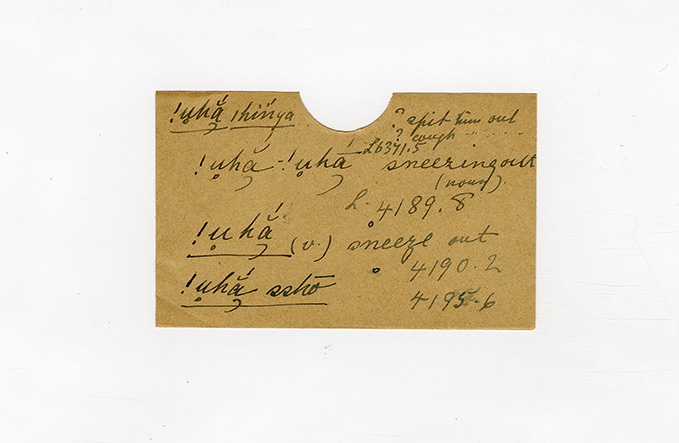 !ụhắ |hiṅya ? spit him out
? cough
L 6371.5
!ụhắ-!ụhā́ sneezing out
(noun).
L. 4189.8
!ụhắ (v.) sneeze out
4190.2
!ụhắ ssho
4195.6